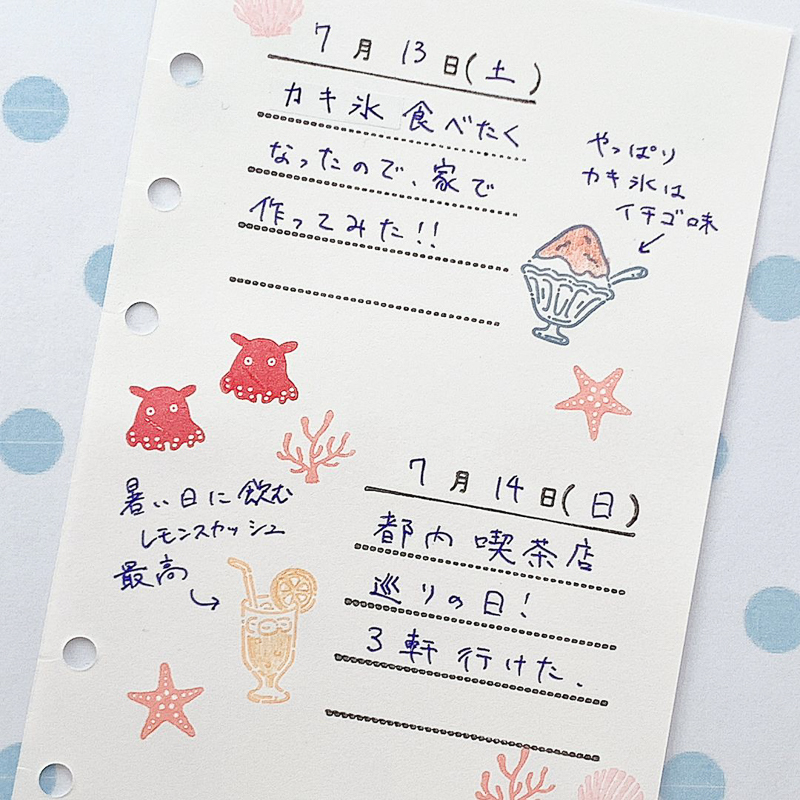 7月13日(土)
カキ氷食べたく
なったので、家で
作ってみた!!
やっぱり
カキ氷は
イチゴ味
7月14日(日)
都内喫茶店
巡りの日!
3軒行けた.
暑い日に飲む
レモンスカッシュ
最高